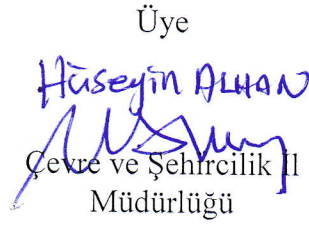 Üye
Hüseyin ALHAN
Çevre ve Şehircilik İl
Müdürlüğü